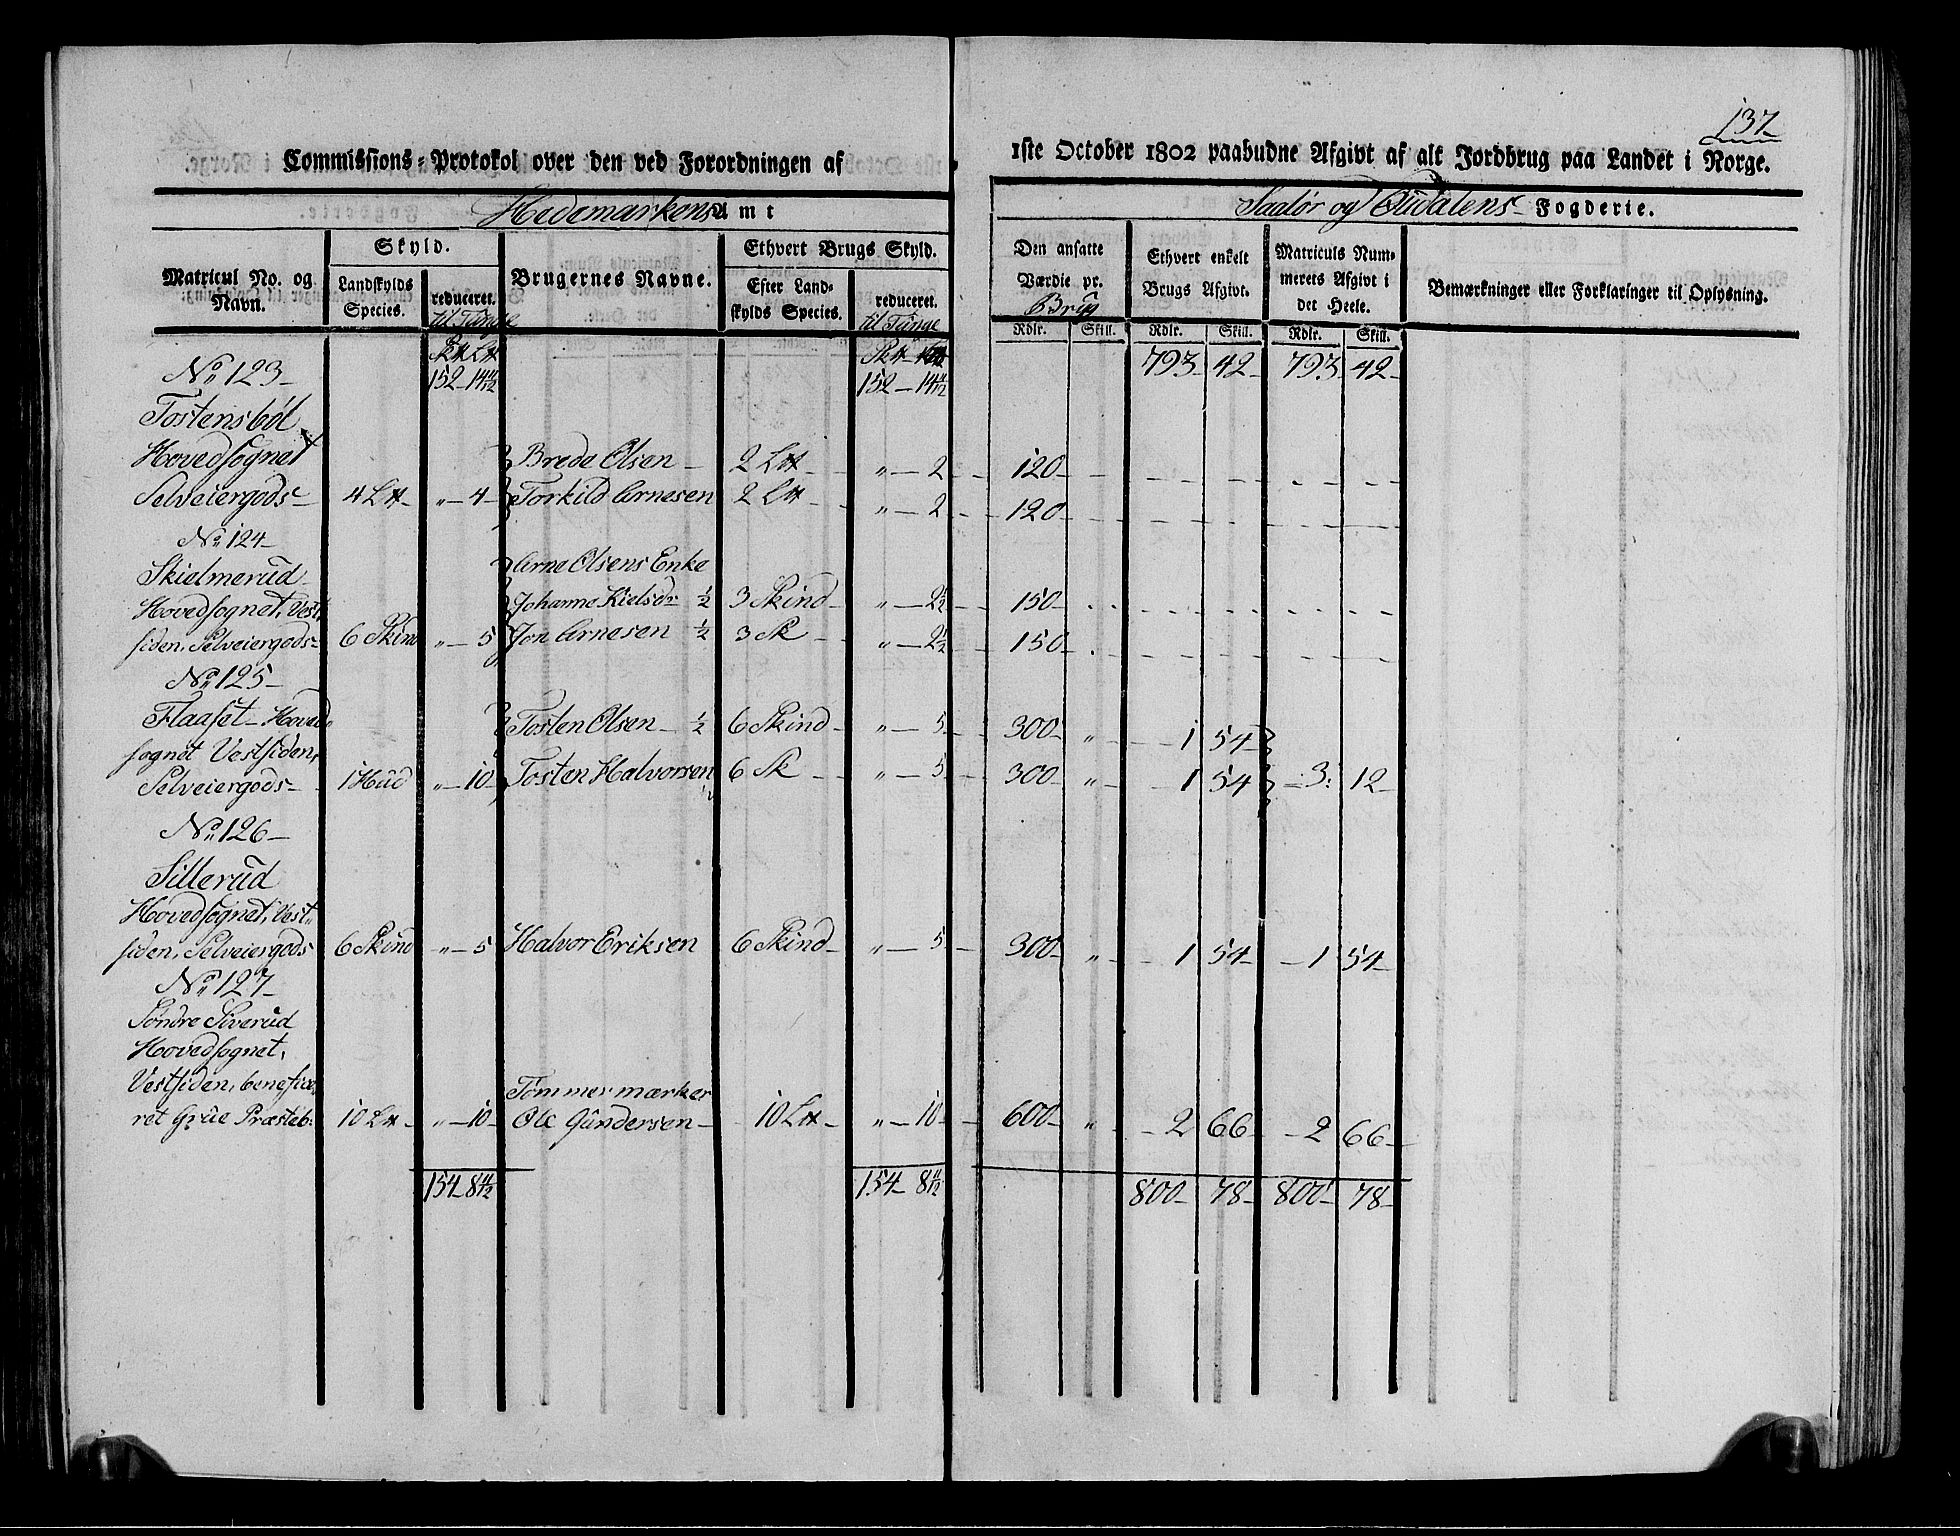 137
Commissions-Protokol over den ved Forordningen af 1ste October 1802 paabudne Afgivt af alt Jordbrug paa Landet i Norge.
Hedemarkens Amt
Soelør og Fogderie.
Matricul No. og Navn.
Skyld.
Landskylds Species.
reduceret. til Tunge
Brugernes Navne.
Ethvert Brugs Skyld.
Efter Landskylds Species.
reduceret. til Tunge
Den ansatte Værdie pr. Brug
Ethvert enkelt Brugs Afgivt.
Matriculs Nummerets Afgivt i det Heele.
Bemærkninger eller Forklaringer til Oplysning.
Rdlr. Skill. Rdlr. Skill. Rdlr. Skill.
152 - 14 11/12 152 - 14 11/12 793 42 793 42
No. 123
Tostensböl
Hovedsognet Brede Olsen 2 L℔ " - 2 120
Selveiergods 4 L℔ " - 4 Torkild Arnesen 2 L℔ " - 2 120
No. 124
Skielmerud Arne Olsens Enke
Hovedsognet, Vest- Johanne Kielsdr 1/2 3 Skind " - 2 1/2 150
siden, Selveiergods 6 Skind " - 5 Jon Arnesen 1/2 3 Sk " - 2 1/2 150
No. 125
Flaaset Hoved- Tosten Olsen 1/2 6 Skind " - 5 300 " 1 54
sognet Vestsiden,
Selveiergods 1 Hud " - 10 Tosten Halvorsen 6 Sk " - 5 300 " 1 54 3 12
No. 126
Sillerud
Hovedsognet, Vest-
siden, Selveiergods 6 Skind " - 5 Halvor Eriksen 6 Skind " - 5 300 " 1 54 1 54
No. 127
Søndre Siverud
Hovedsognet,
Vestsiden, benefice- Tømmermærker
ret Grue Præsteb: 10 L℔ " - 10 Ole Gundersen 10 L℔ " - 10 600 " 2 66 2 66
154 - 8 11/12 154 - 8 11/12 800 78 800 78